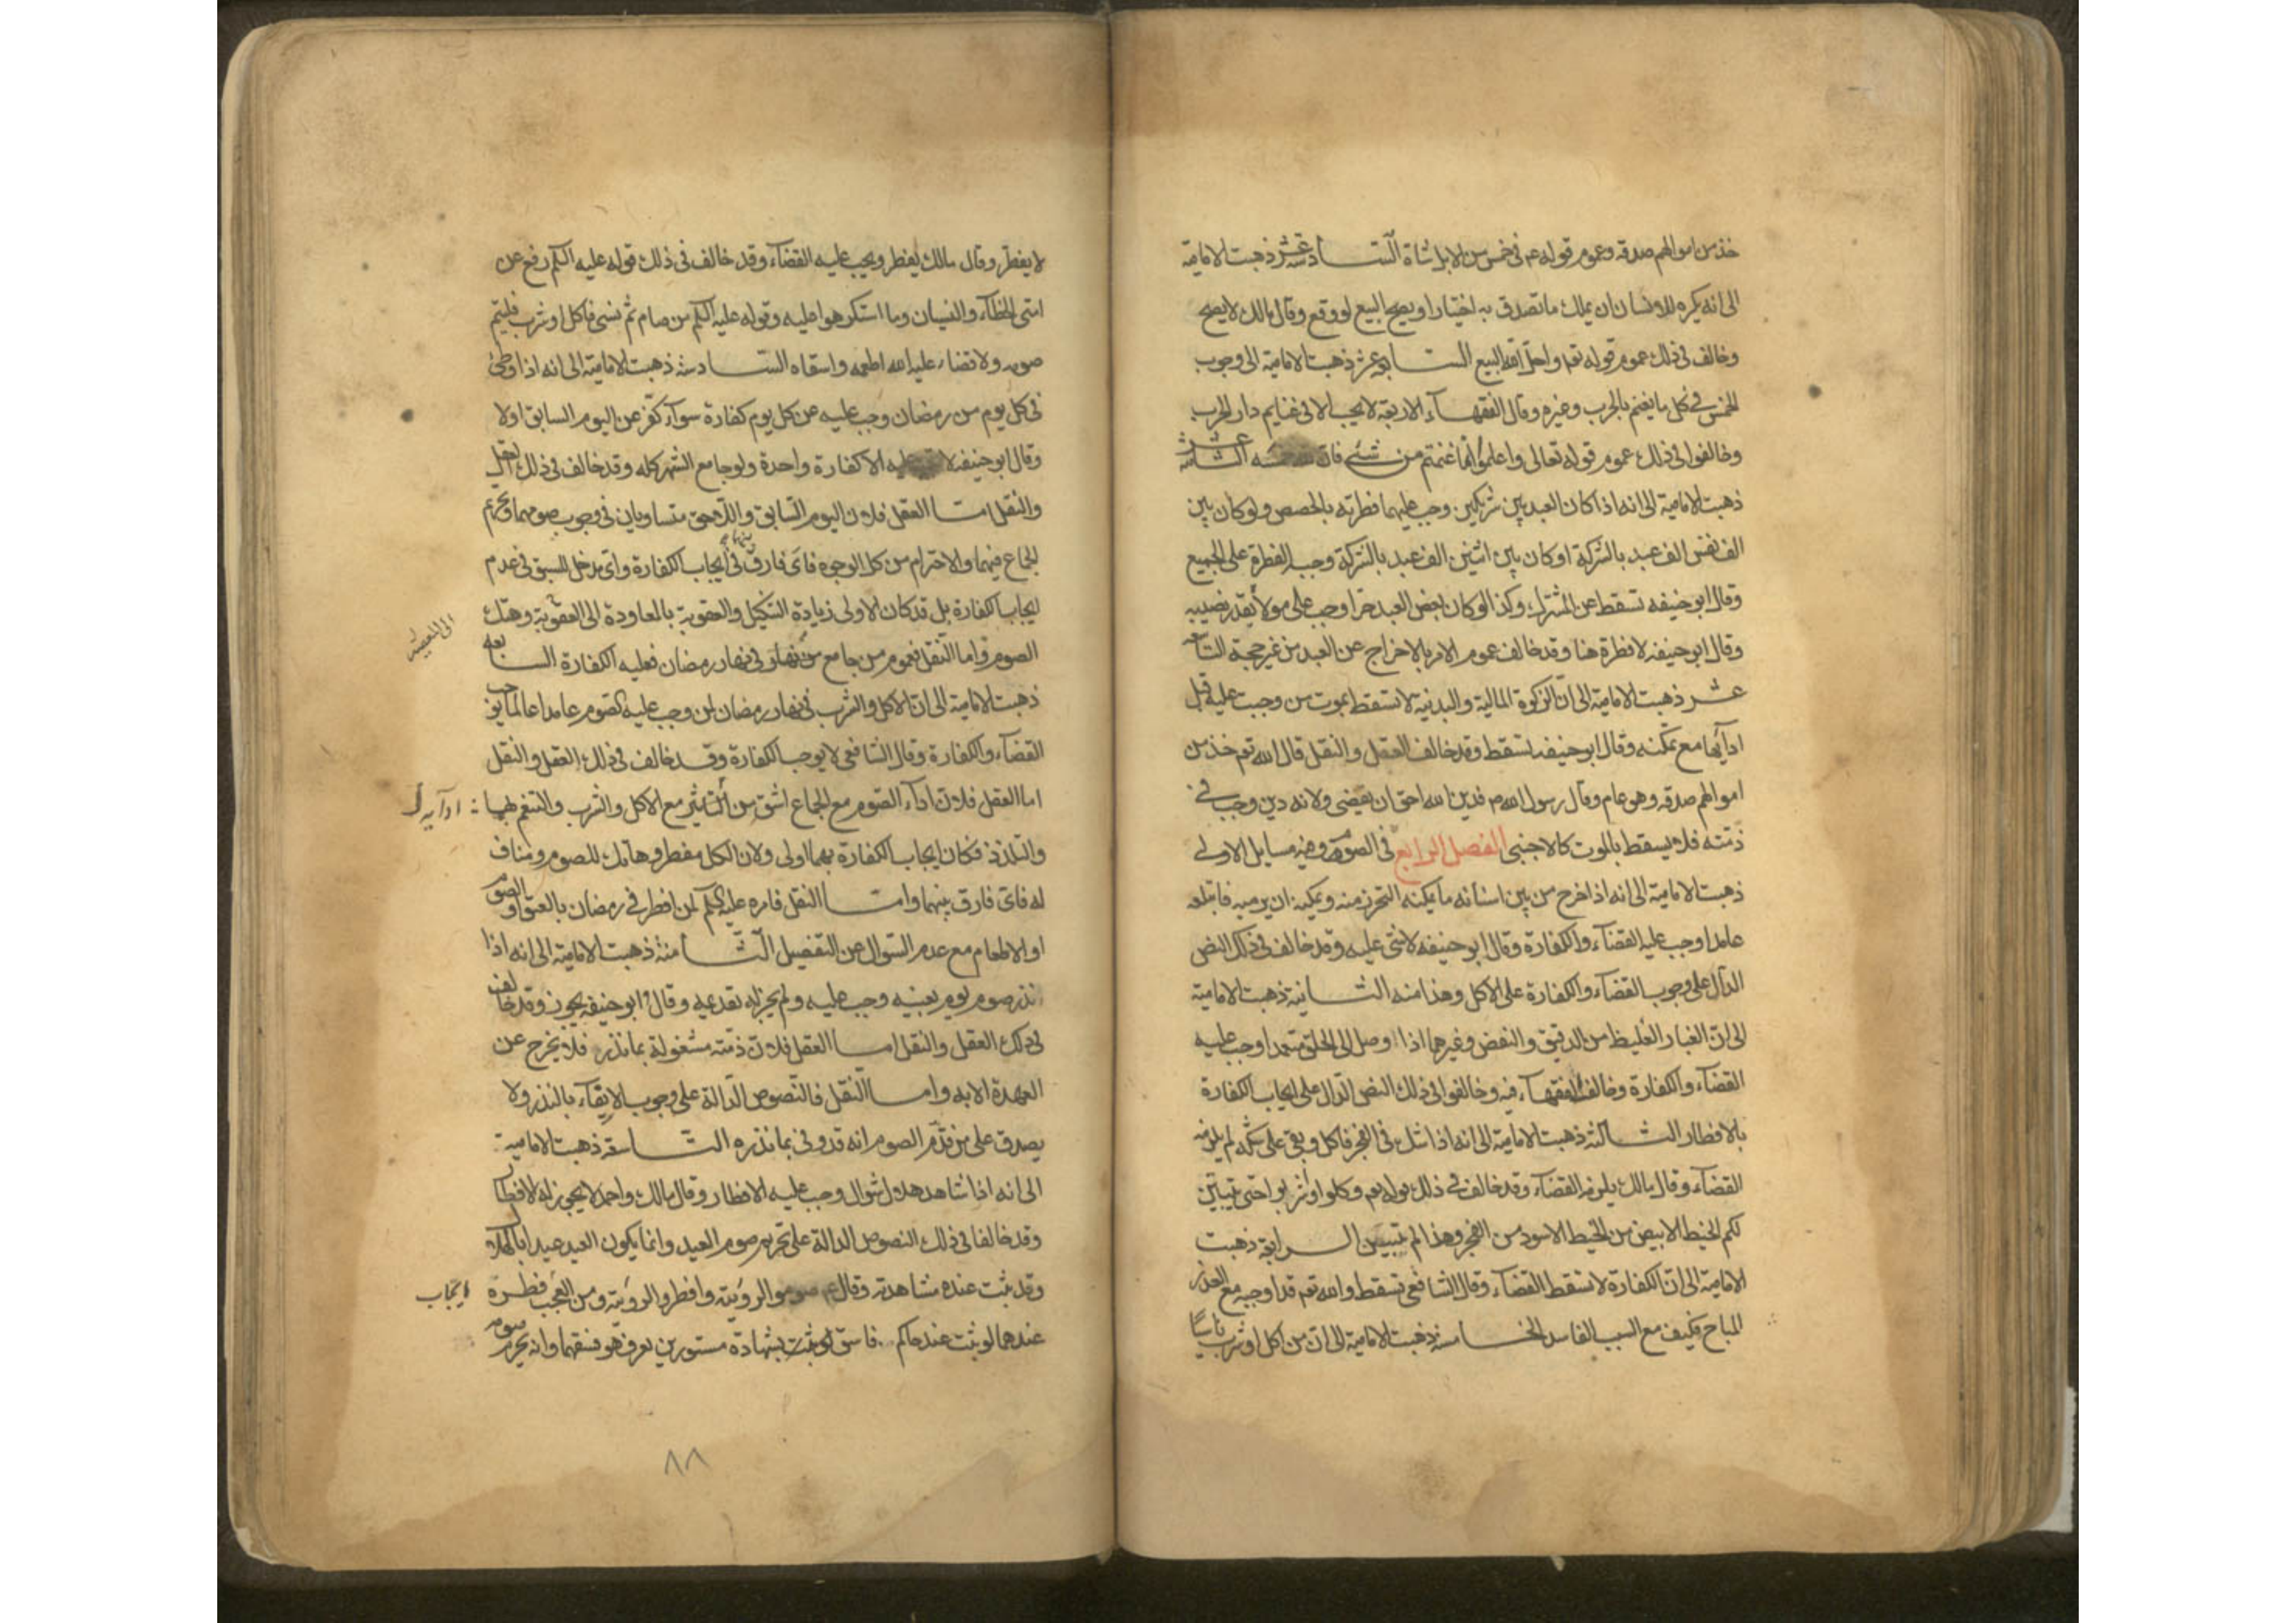 خذ من اموالهم صدقه وعموم قوله عم فى خمس من الابل شاة السادسة عشر ذهبت الامامية
الى انه يكره للانسان ان يملك ما تصدق به اختيارا ويصح البيع لو وقع وقال مالك لا يصح
وخالف فى ذلك عموم قوله تع واحل الله البيع السابعة عشر ذهبت الامامية الى وجوب
الخمس فى كل ما يغنم بالحرب وغيره وقال الفقهاء الاربعة لا يجب الا فى غنايم دار الحرب
وخالفوا فى ذلك عموم قوله تعالى واعلموا انما غنمتم من شئ فان لله خمسه الثامنة عشر
ذهبت الامامية الى انه اذا كان العبد بين شريكين وجب عليهما فطرته بالحصص ولو كان بين
الف نفس الف عبد بالشركة او كان بين اثنين الف عبد بالشركة وجب الفطرة على الجميع
وقال ابو حنيفه تسقط عن المشترك وكذا لو كان بعض العبد حرا وجب على مولاه بقدر نصيبه
وقال ابو حنيفه لا فطرة هنا وقد خالف عموم الامر بالاخراج عن العبد من غير حجة التاسعه
عشر ذهبت الامامية الى ان الزكوة المالية والبدنية لا تسقط بموت من وجبت عليه قبل
ادآيها مع تمكنه وقال ابو حنيفه تسقط وقد خالف العقل والنقل قال الله تع خذ من
اموالهم صدقه وهو عام وقال رسول الله ص فدين الله احق ان يقضى ولانه دين وجب فى
ذمته فلا يسقط بالموت كالاجنبى الفصل الرابع فى الصوم وفيه مسايل الاولى
ذهبت الامامية الى انه اذا خرج من بين اسنانه ما يمكنه التحرز منه ويمكنه ان يرميه فابتلعه
عامدا وجب عليه القضاء والكفارة وقال ابو حنيفه لا شئ عليه وقد خالف فى ذلك النص
الدال على وجوب القضاء والكفارة على الاكل وهذا منه الثانية ذهبت الامامية
الى ان الغبار الغليظ من الدقيق والنفض وغيرهما اذا وصل الى الحلق متعمدا وجب عليه
القضاء والكفارة وخالف الفقهاء فيه وخالفوا فى ذلك النص الدال على ايجاب الكفارة
بالافطار الثالثة ذهبت الامامية الى انه اذا شك فى الفجر فاكل وبقى على شكه لم يلزمه
القضاء وقال مالك يلزمه القضاء وقد خالف فى ذلك قوله تع وكلوا واشربوا حتى يتبين
لكم الخيط الابيض من الخيط الاسود من الفجر وهذا لم يتبين الرابعة ذهبت
الامامية الى ان الكفارة لا تسقط القضاء وقال الشافعى تسقط والله تع قد اوجبه مع العذر
المباح فكيف مع السبب الفاسد الخامسة ذهبت الامامية الى ان من اكل او شرب ناسيا
لا يفطر وقال مالك يفطر ويجب عليه القضاء وقد خالف فى ذلك قوله عليه السلم رفع عن
امتى الخطاء والنسيان وما استكرهوا عليه وقوله عليه السلم من صام ثم نسى فاكل او شرب فليتم
صومه ولا قضاء عليه الله اطعمه واسقاه السادسة ذهبت الامامية الى انه اذا وطئ
فى كل يوم من رمضان وجب عليه عن كل يوم كفارة سواء كفر عن اليوم السابق او لا
وقال ابو حنيفه لا عليه الا كفارة واحدة ولو جامع الشهر كله وقد خالف فى ذلك العقل
والنقل اما العقل فلان اليوم السابق واللاحق متساويان فى وجوب صومهما وتحريم
الجماع فيهما والاحترام من كل الوجوه فاى فارق بينهما فى ايجاب الكفارة واى مدخل للسبق فى عدم
ايجاب الكفارة بل قد كان الاولى زيادة التنكيل والعقوبة بالمعاودة الى العقوبة وهتك
الى المعصية
الصوم واما النقل فعموم من جامع فى نهار رمضان فعليه الكفارة السابعه
ذهبت الامامية الى ان الاكل والشرب فى نهار رمضان لمن وجب عليه الصوم عامدا عالما يوجب
القضاء والكفارة وقال الشافعى لا يوجب الكفارة وقد خالف فى ذلك العقل والنقل
اما العقل فلان اداء الصوم مع الجماع اشق من مع الاكل والشرب والتنعم بهما
والتلذذ فكان ايجاب الكفارة بهما اولى ولان الكل مفطر وهاتك للصوم ومناف
له فاى فارق بينهما واما النقل فامره عليه السلم لمن افطر فى رمضان بالعتق او الصوم
او الاطعام مع عدم السؤال عن التفصيل الثامنة ذهبت الامامية الى انه اذا
نذر صوم يوم بعينه وجب عليه ولم يجز له تقديمه وقال ابو حنيفه يجوز وقد خالف
فى ذلك العقل والنقل اما العقل فلان ذمته مشغولة بما نذر فلا يخرج عن
العهدة الا به واما النقل فالنصوص الدالة على وجوب الايفاء بالنذر ولا
يصدق على من قدم الصوم انه قد وفى بما نذره التاسعة ذهبت الامامية
الى انه اذا شاهد هلال شوال وجب عليه الافطار وقال مالك واحمد لا يجوز له الافطار
وقد خالفا فى ذلك النصوص الدالة على تحريم صوم العيد وانما يكون العيد عيدا بالهلال
وقد ثبت عنده مشاهدته وقال عم صوموا لرؤيته وافطروا لرؤيته ومن العجب فطره
ايجاب
عندهما لو ثبت عند حاكم فاسق لو ثبت بشهادة مستورين يعرف هو فسقهما وانه يحرم صومه
٨٨